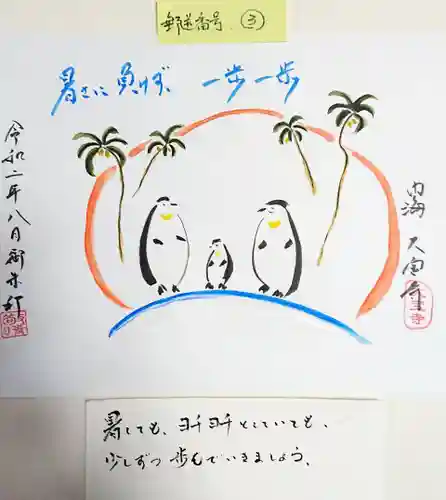 郵送番号 ③
暑さに負けず、一歩一歩
令和二年八月御朱印
内海 大宝寺
暑くても、ヨチヨチとしていても、
少しずつ歩んでいきましょう。